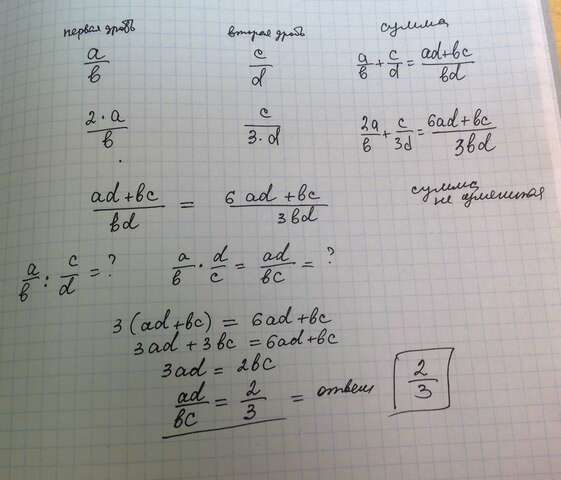 первая дробь вторая дробь сумма
a/b c/d a/b + c/d = ad+bc/bd
2·a/b c/3·d 2a/b + c/3d = 6ad+bc/3bd
ad+bc/bd = 6 ad+bc/3bd сумма
не
a/b : c/d = ? a/b · d/c = ad/bc = ?
3(ad+bc) = 6ad+bc
3ad+3bc = 6ad+bc
3ad = 2bc
ad/bc = 2/3 = ответ 2/3